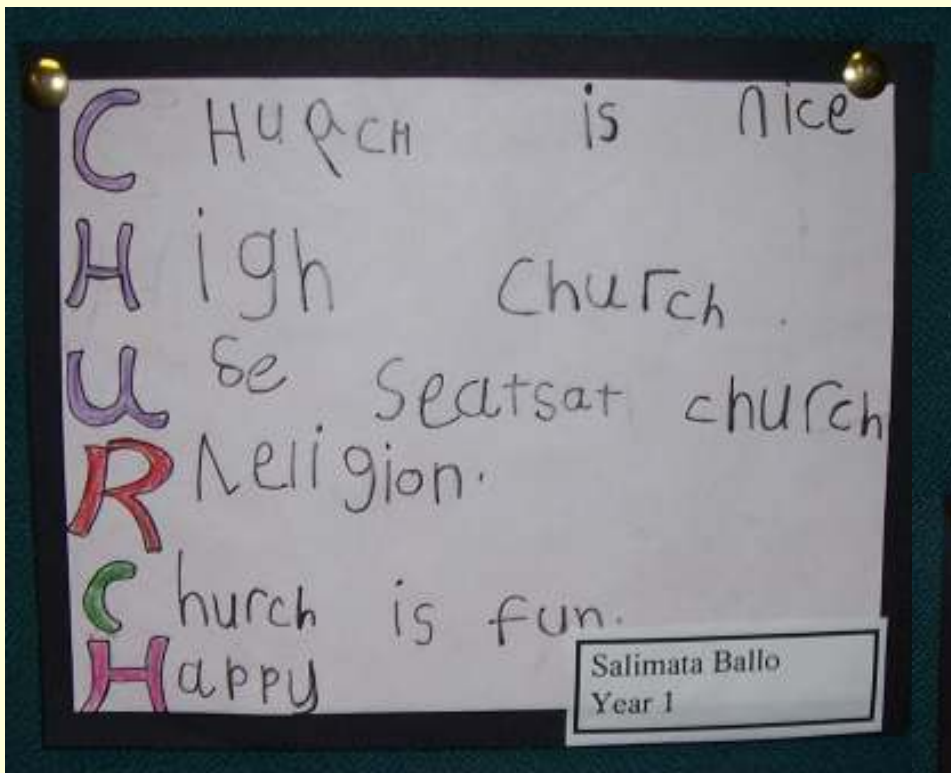 CHURCH is nice
High Church.
Use Seatsat church
RReligion.
Church is fun.
Happy
Salimata Ballo
Year 1